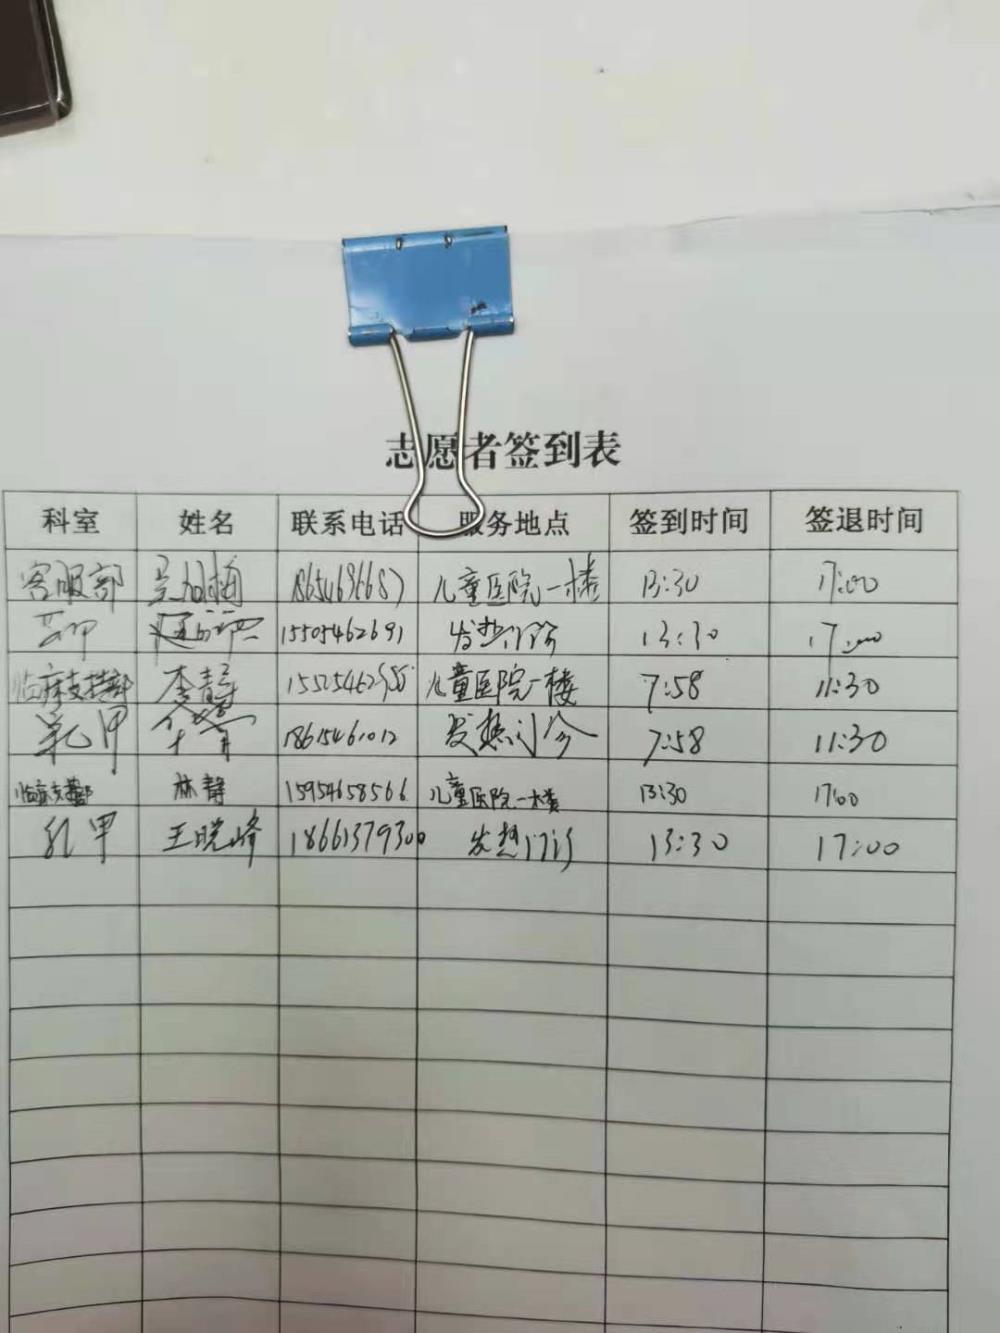 志愿者签到表
科室 姓名 联系电话 服务地点 签到时间 签退时间
客服部 儿童医院一楼 13:30 17:00
15505462691 发热门诊 13:30 17:00
临床支持部 李静 儿童医院一楼 7:58 11:30
乳甲 18615461012 发热门诊 7:58 11:30
临床支持部 林静 15954658566 儿童医院一楼 13:30 17:00
乳甲 王晓峰 18661379300 发热门诊 13:30 17:00